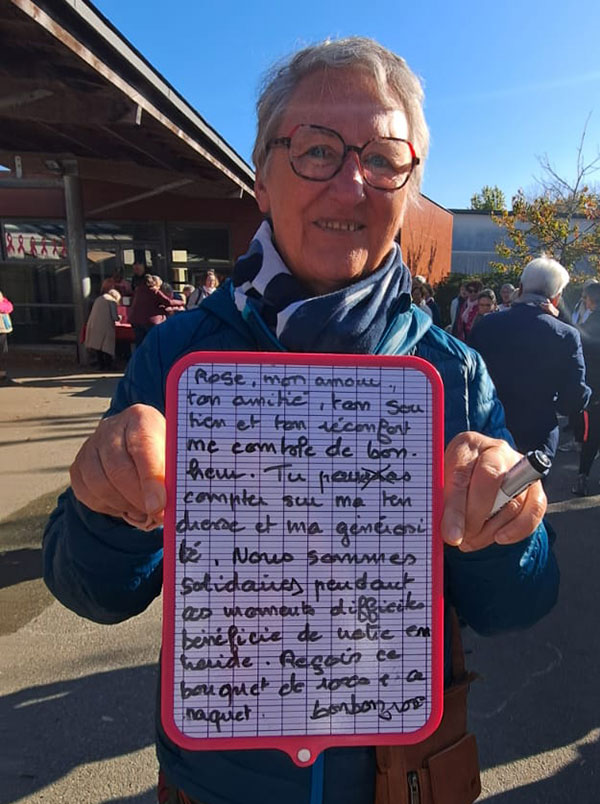 Rose, mon amour,
ton amitié, ton sou
tien et ton réconfort
me comble de bon-
heur. Tu peux
compter sur ma ten
dresse et ma générosi
té. Nous sommes
solidaires pendant
ces moments difficiles
bénéficie de notre en
traide. Reçois ce
bouquet de roses & ce
naquet. bonbonrose